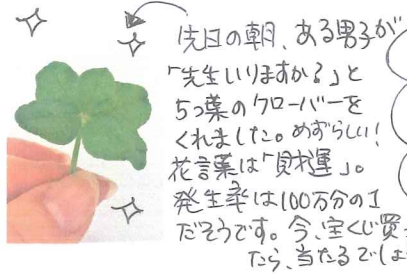 先日の朝、ある男子が
「先生いりますか?」と
5つ葉のクローバーを
くれました。めずらしい!
花言葉は「財運」。
発生率は100万分の1
だそうです。今、宝くじ買っ
たら、当たるでしょ